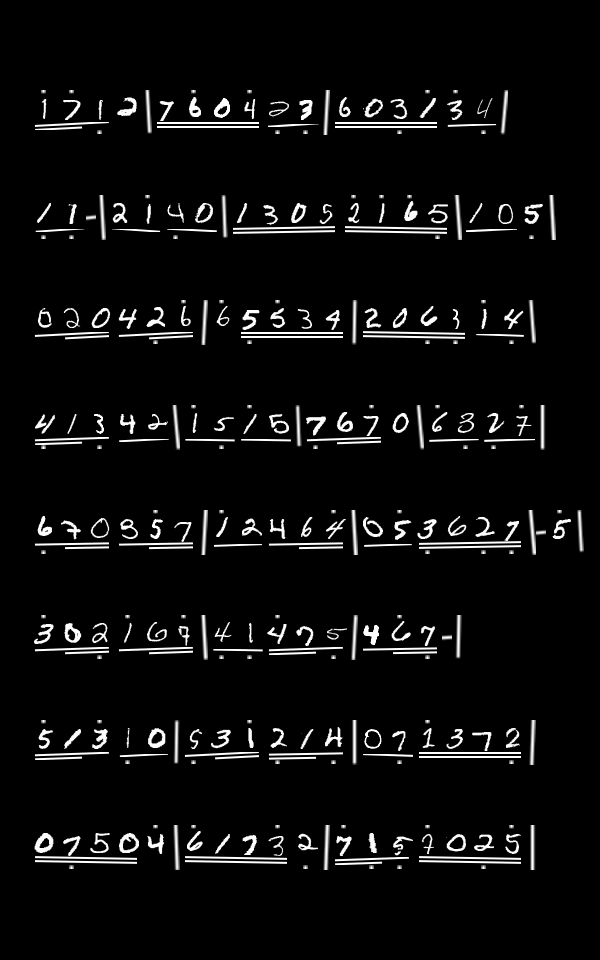 1 7 1 2 | 7 6 0 4 2 3 | 6 0 3 1 3 4 |
1 1 - | 2 1 4 0 | 1 3 0 5 2 1 6 5 | 1 0 5 |
0 2 0 4 2 6 | 6 5 5 3 4 | 2 0 6 3 1 4 |
4 1 3 4 2 | 1 5 1 5 | 7 6 7 0 | 6 8 2 7 |
6 7 0 8 5 7 | 1 2 4 6 4 | 0 5 3 6 2 7 | - 5 |
3 0 2 1 6 7 | 4 1 4 7 5 | 4 6 7 - |
5 1 3 1 0 | 5 3 1 2 1 4 | 0 7 1 3 7 2 |
0 7 5 0 4 | 6 1 7 3 2 | 7 1 5 7 0 2 5 |